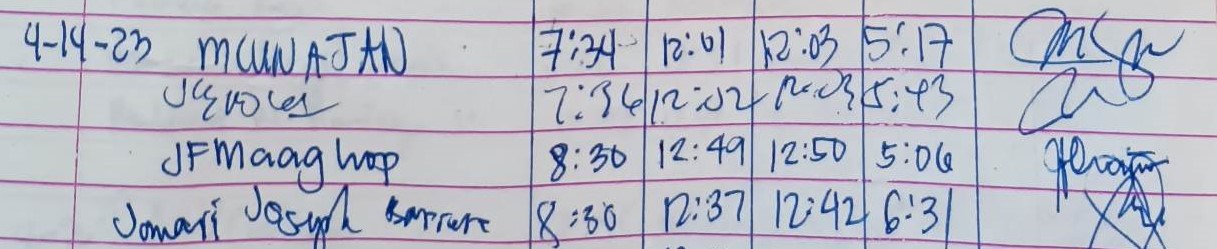 4-14-23 MCUNAJAN 7:34 12:01 12:03 5:17
7:36 12:02 12:03 5:43
JFMaaghop 8:30 12:49 12:50 5:06
Jomari Joseph 8:30 12:37 12:42 6:31